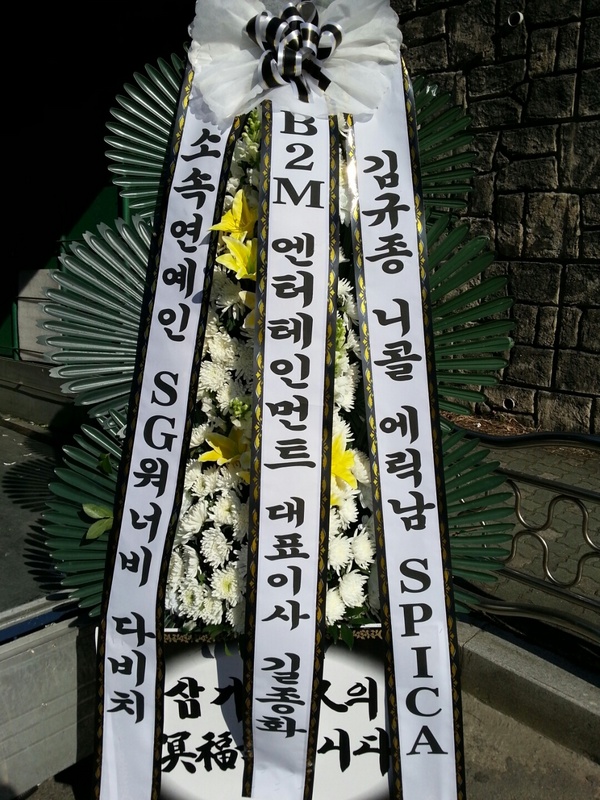 소속연예인 SG워너비 다비치
B2M 엔터테인먼트 대표이사 길종화
김규종 니콜 에릭남 SPICA
삼가
冥福